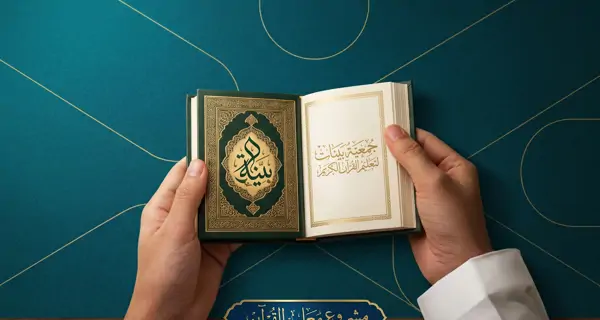 جمعية بينات
لتعليم القرآن الكريم
مشروع القرآن